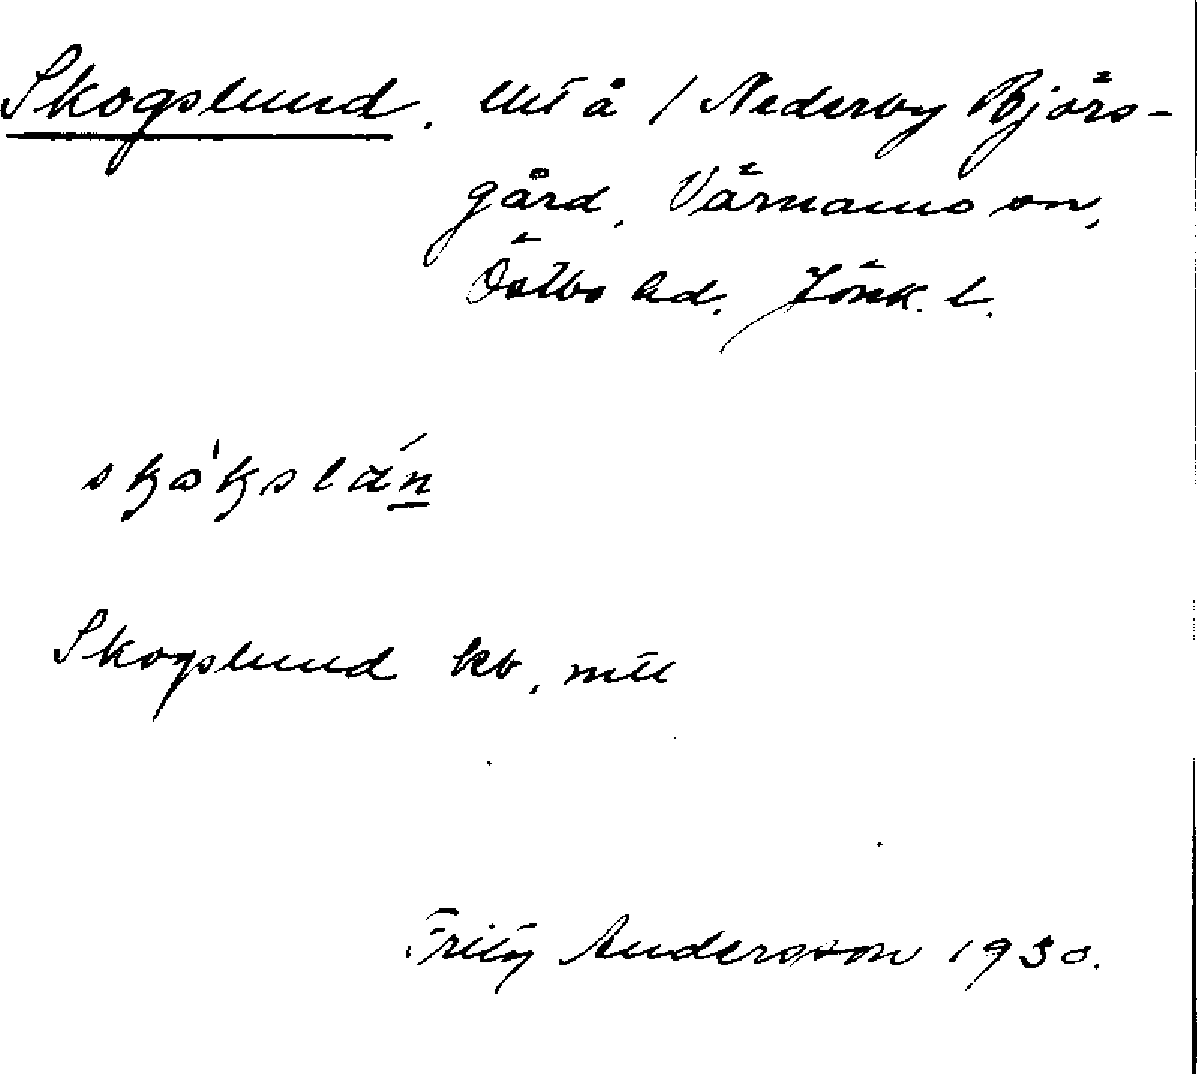 Skogslund. Utå / Nederby Bjärs-
gård, Värnamo sn,
Östbo hd. Jönk. l.
skòkslán
Skogslund kb, mtl
Fritz Andersson 1930.